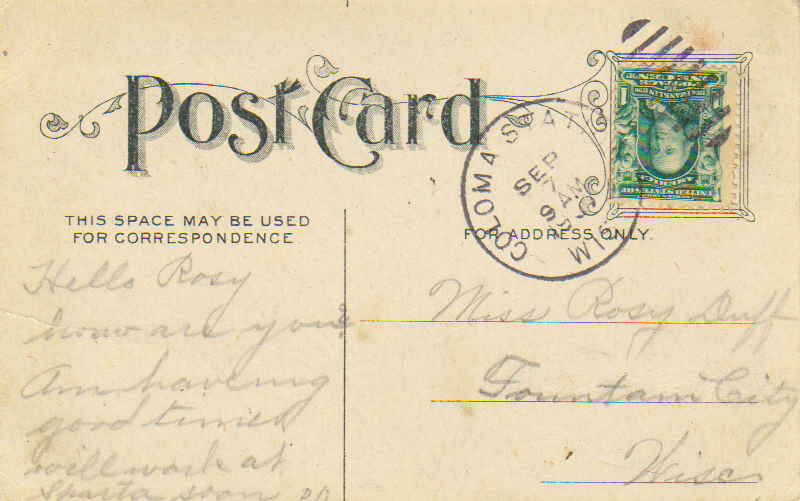 Post Card
THIS SPACE MAY BE USED
FOR CORRESPONDENCE
FOR ADDRESS ONLY.
COLOMA STAT
SEP
7
AM
WIS
Hello Rosy
how are you?
Am haveing
good times
will work at
Sparta soon
Miss Rosy Duff
Fountain City
Wisc